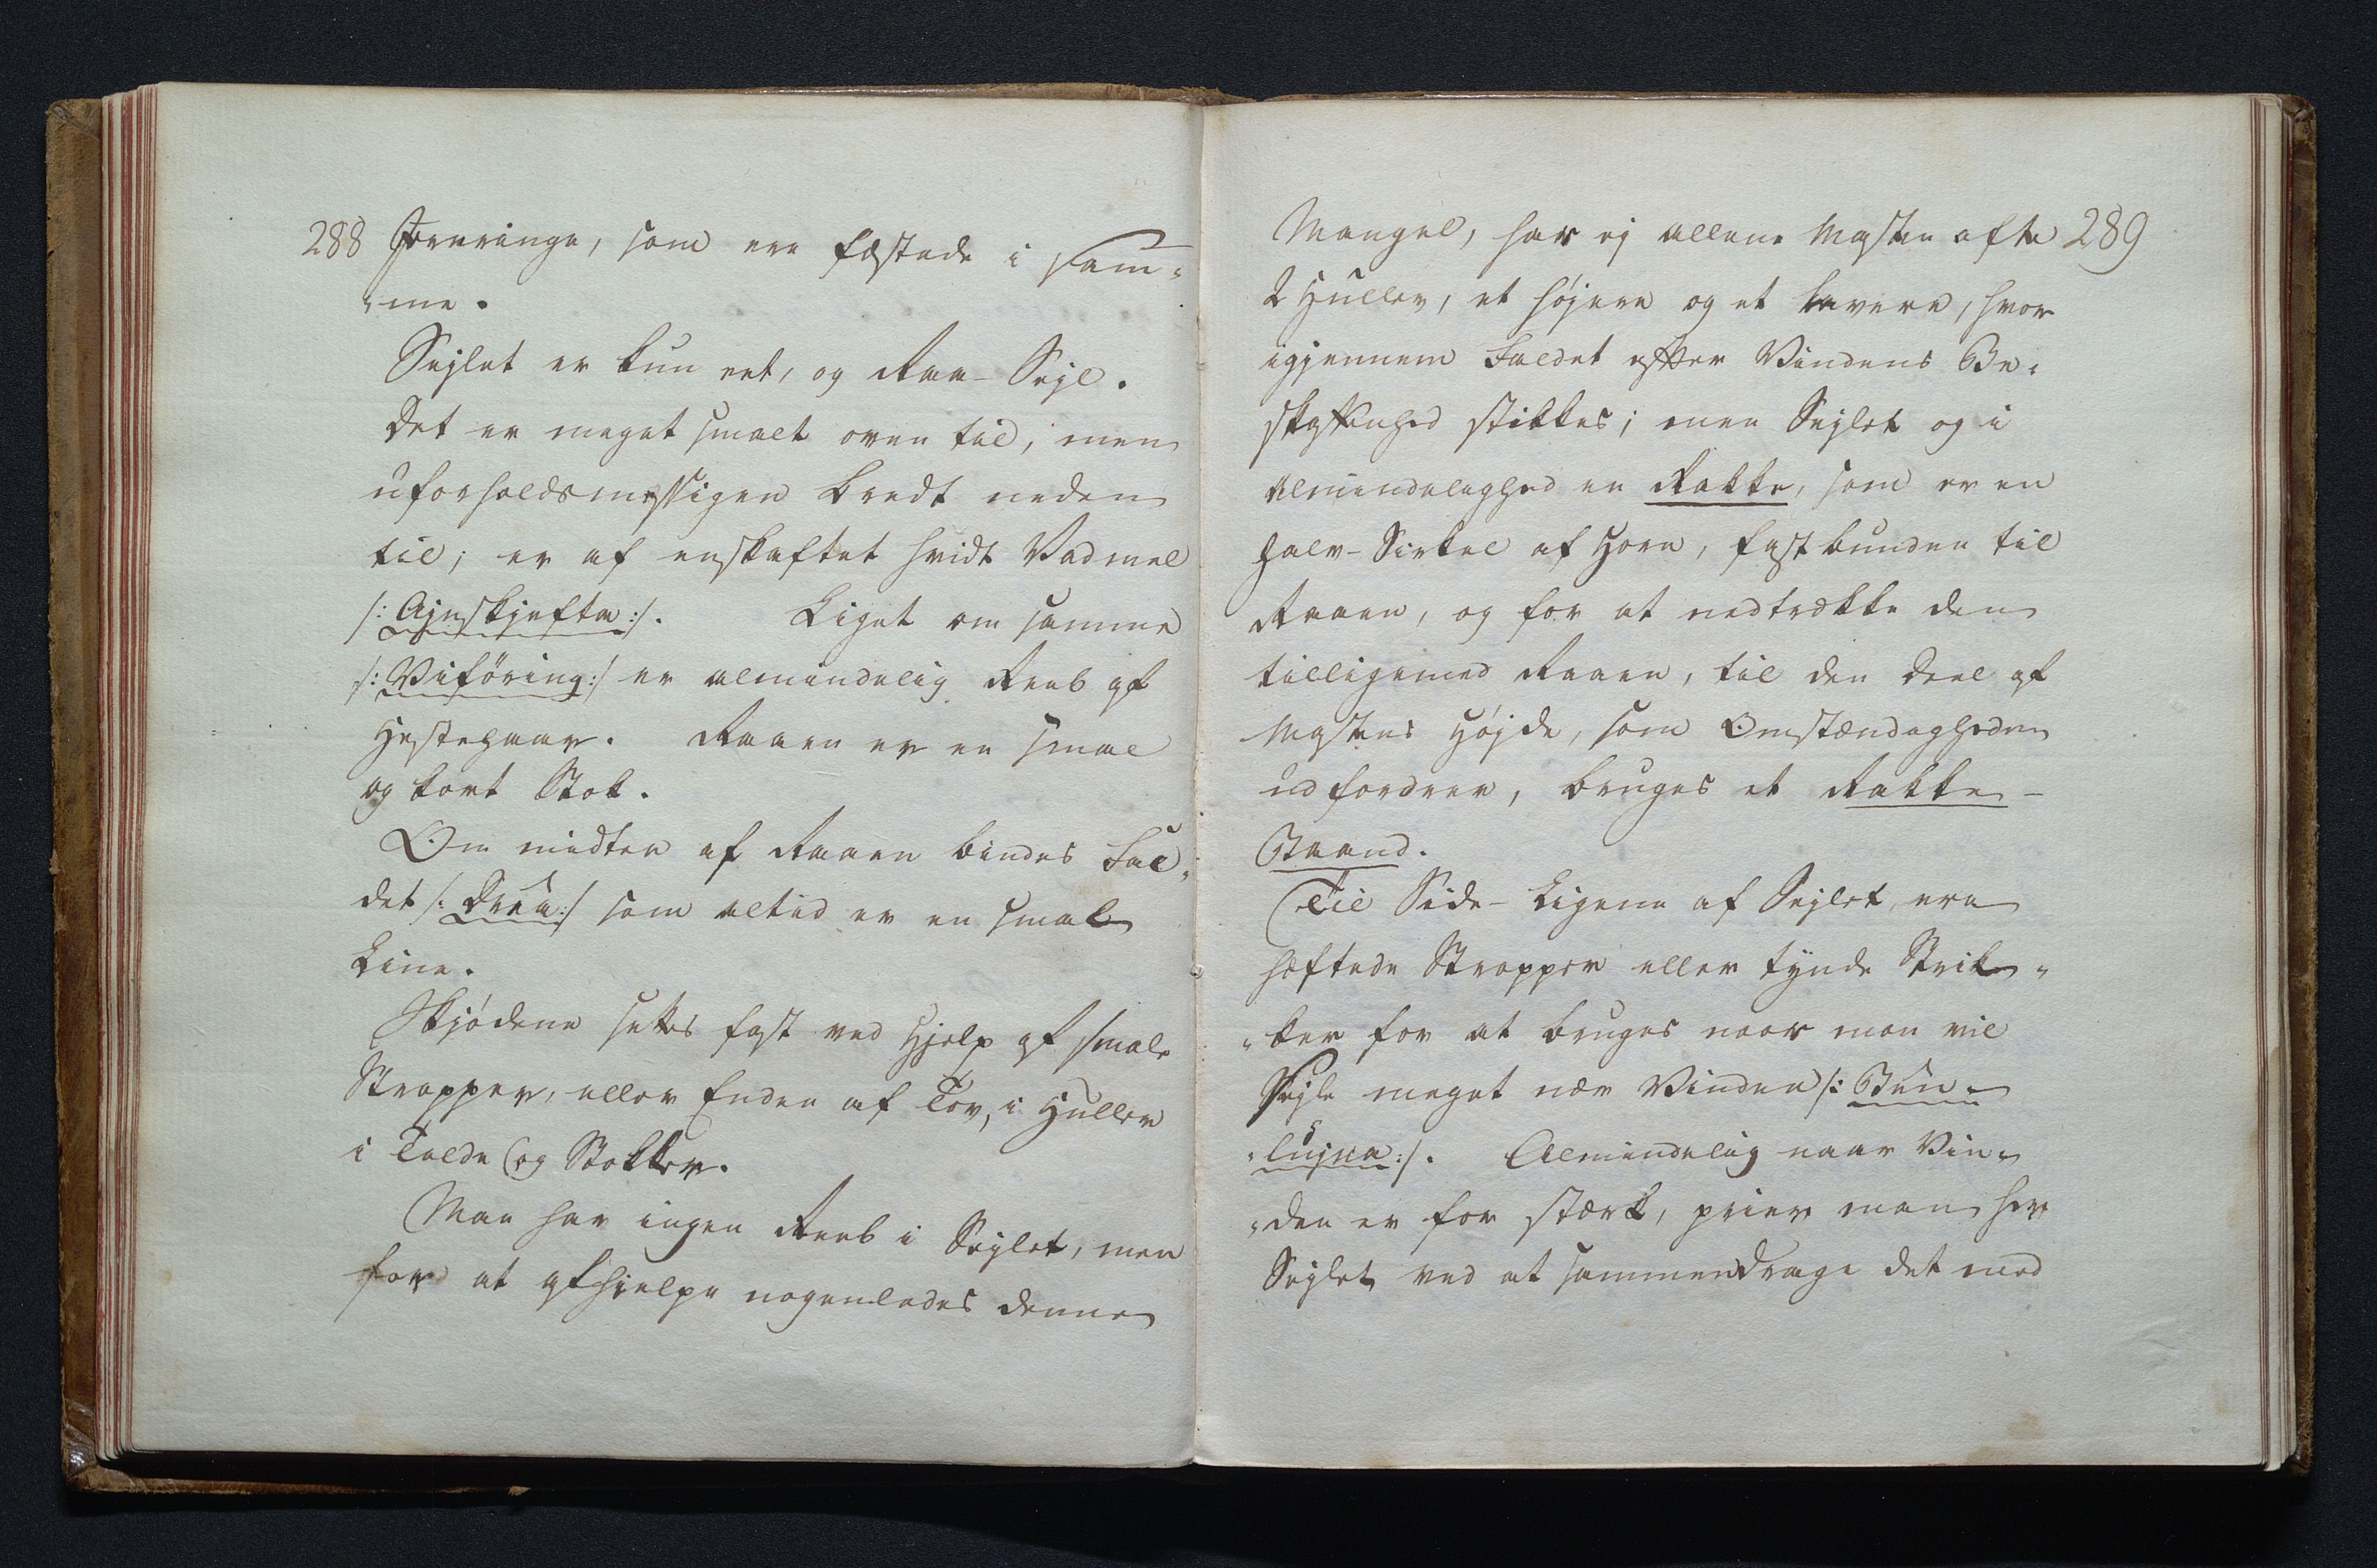 288 Jernringe, som ere fæstede i sam„
„me.
Sejlet er kun eet, og Raa-Sejl.
Det er meget smalt oven til, men
uforholdsmessigen bredt neden
til; er af enskaftet hvidt Vadmel
/: Ajnskjefta :/. Liget om samme
/: Viföring :/ er almindelig Reeb af
Hestehaar. Raaen er en smal
og kort Stok.
Om midten af Raaen bindes Fal„
det /: Dreà :/ som altid er en smal
Line.
Skjødene settes fast ved Hjelp af smale
Stropper, eller Enden af Tov, i Huller
i Tolde og Stokker.
Man har ingen Reeb i Sejlet, men
for at afhielpe nogenledes denne
Mangel, har ej allene Masten ofte 289
2 Huller, et højere og et lavere, hvor
igjennem Faldet efter Vindens Be„
skaffenhed stikkes; men Sejlet og i
Almindelighed en Rakke, som er en
halv-Sirkel af Horn, fastbunden til
Raaen, og for at nedtrække den
tilligemed Raaen, til den Deel af
Mastens Højde, som Omstændigheden
udfordrer, bruges et Rakke-
Baand.
Til Side-Ligene af Sejlet ere
hæftede Stropper eller tynde Strik„
„ker for at bruges naar man vil
Sejle meget nær Vinden /: Bun„
„lujna :/. Almindelig naar Vin„
„den er for stærk, prier man her
Sejlet ved at sammendrage det med